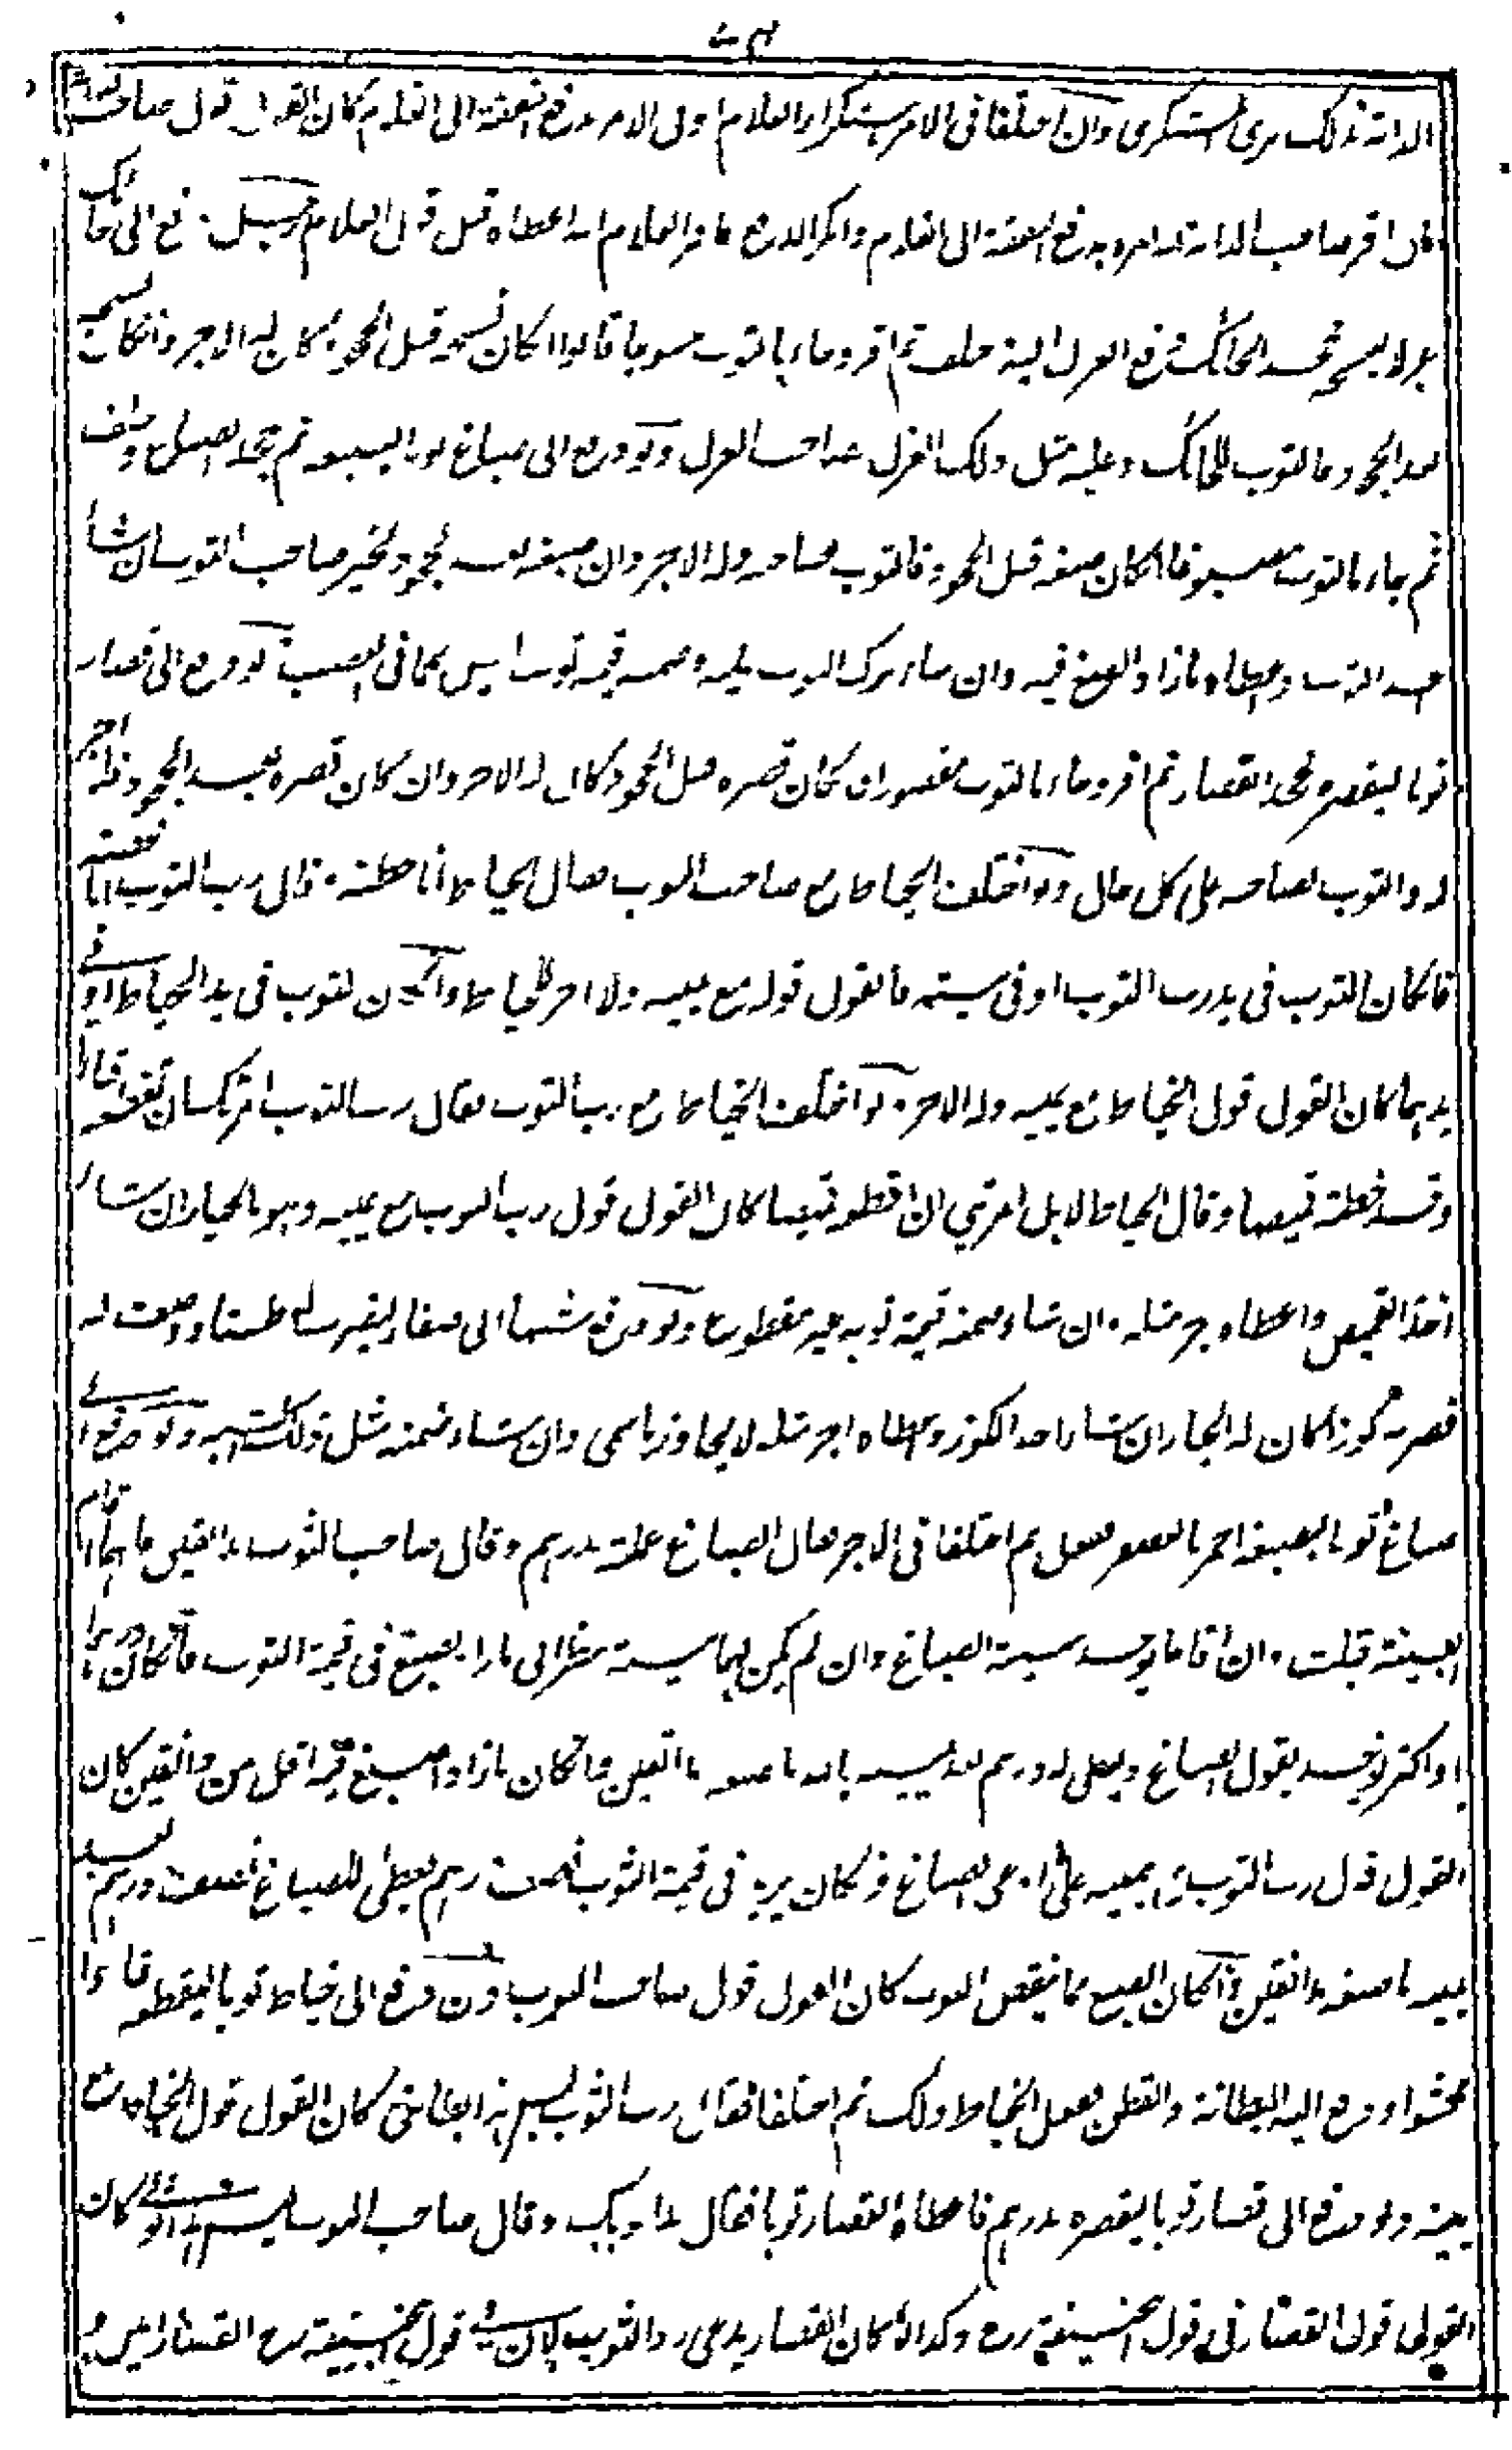 الدابة ذلك برئ المستكري وان اختلفا في الامر المستكري والغلام اولى الامر بدفع النفقة الى الغلام كان القول قول صاحب الدابة
فان اقر صاحب الدابة انه امره بدفع النفقة الى الغلام وانكر الدفع فاقر الغلام انه اعطاه قبل قول الغلام رجل دفع الى حائك
غزلا لينسجه فجحد الحائك دفع الغزل اليه وحلف ثم اقر وجاء بالثوب منسوجا قالوا ان كان نسجه قبل الجحود كان له الاجر وان كان نسجه
بعد الجحود فالثوب للحائك وعليه مثل ذلك الغزل لصاحب الغزل ولو دفع الى صباغ ثوبا ليصبغه ثم جحد الصباغ وحلف
ثم جاء بالثوب مصبوغا فان كان صبغه قبل الجحود فالثوب لصاحبه وله الاجر وان صبغه بعد الجحود يخير صاحب الثوب ان شاء
اخذ الثوب واعطاه ما زاد الصبغ فيه وان شاء ترك الثوب عليه وضمنه قيمة ثوب ابيض كما في الغصب ولو دفع الى قصار
ثوبا ليقصره فجحد القصار ثم اقر وجاء بالثوب مقصورا ان كان قصره قبل الجحود كان له الاجر وان كان قصره بعد الجحود فلا اجر
له والثوب لصاحبه على كل حال ولو اختلف الخياط مع صاحب الثوب فقال الخياط انا خطته وقال رب الثوب انا خطته
فان كان الثوب في يد رب الثوب او في بيته فالقول قوله مع يمينه ولا اجر للخياط وان كان الثوب في يد الخياط او في
يديهما كان القول قول الخياط مع يمينه وله الاجر ولو اختلف الخياط مع رب الثوب فقال رب الثوب امرتك ان تقطعه قباء
وقد خطته قميصا وقال الخياط لا بل امرتني ان اقطعه قميصا كان القول قول رب الثوب مع يمينه وهو بالخيار ان شاء
اخذ القميص واعطاه اجر مثله وان شاء ضمنه قيمة ثوبه غير مقطوع ولو دفع شبها الى صفار ليضرب له طستا ووصف له
فضربه كوزا كان له الخيار ان شاء اخذ الكوز واعطاه اجر مثله لا يجاوز ما سمى وان شاء ضمنه مثل ذلك الشبه ولو دفع الى
صباغ ثوبا ليصبغه احمر بالعصفر ففعل ثم اختلفا في الاجر فقال الصباغ عملته بدرهم وقال صاحب الثوب بدانقين فايهما اقام
البينة قبلت وان اقاما يؤخذ ببينة الصباغ وان لم يكن لهما بينة ينظر الى ما زاد الصبغ في قيمة الثوب فان كان درهما
او اكثر يؤخذ بقول الصباغ ويعطى له درهم بعد يمينه بالله ما صبغه بدانقين وان كان ما زاد الصبغ فيه اقل من دانقين كان
القول قول رب الثوب مع يمينه على ما ادعى الصباغ وان كان يزيد في قيمة الثوب نصف درهم يعطى للصباغ نصف درهم بعد
يمينه ما صبغه بدانقين وان كان الصبغ مما ينقص الثوب كان القول قول صاحب الثوب ولو دفع الى خياط ثوبا ليقطعه قباء
محشوا ودفع اليه البطانة والقطن ففعل الخياط ذلك ثم اختلفا فقال رب الثوب ليس هذا بطانتي كان القول قول الخياط مع
يمينه ولو دفع الى قصار ثوبا ليقصره بدرهم فاعطاه القصار ثوبا فقال هذا ثوبك وقال صاحب الثوب ليس هذا ثوبي كان
القول قول القصار في قول ابي حنيفة رح وكذا لو كان القصار يدعي رد الثوب لان في قول ابي حنيفة رح القصار امين